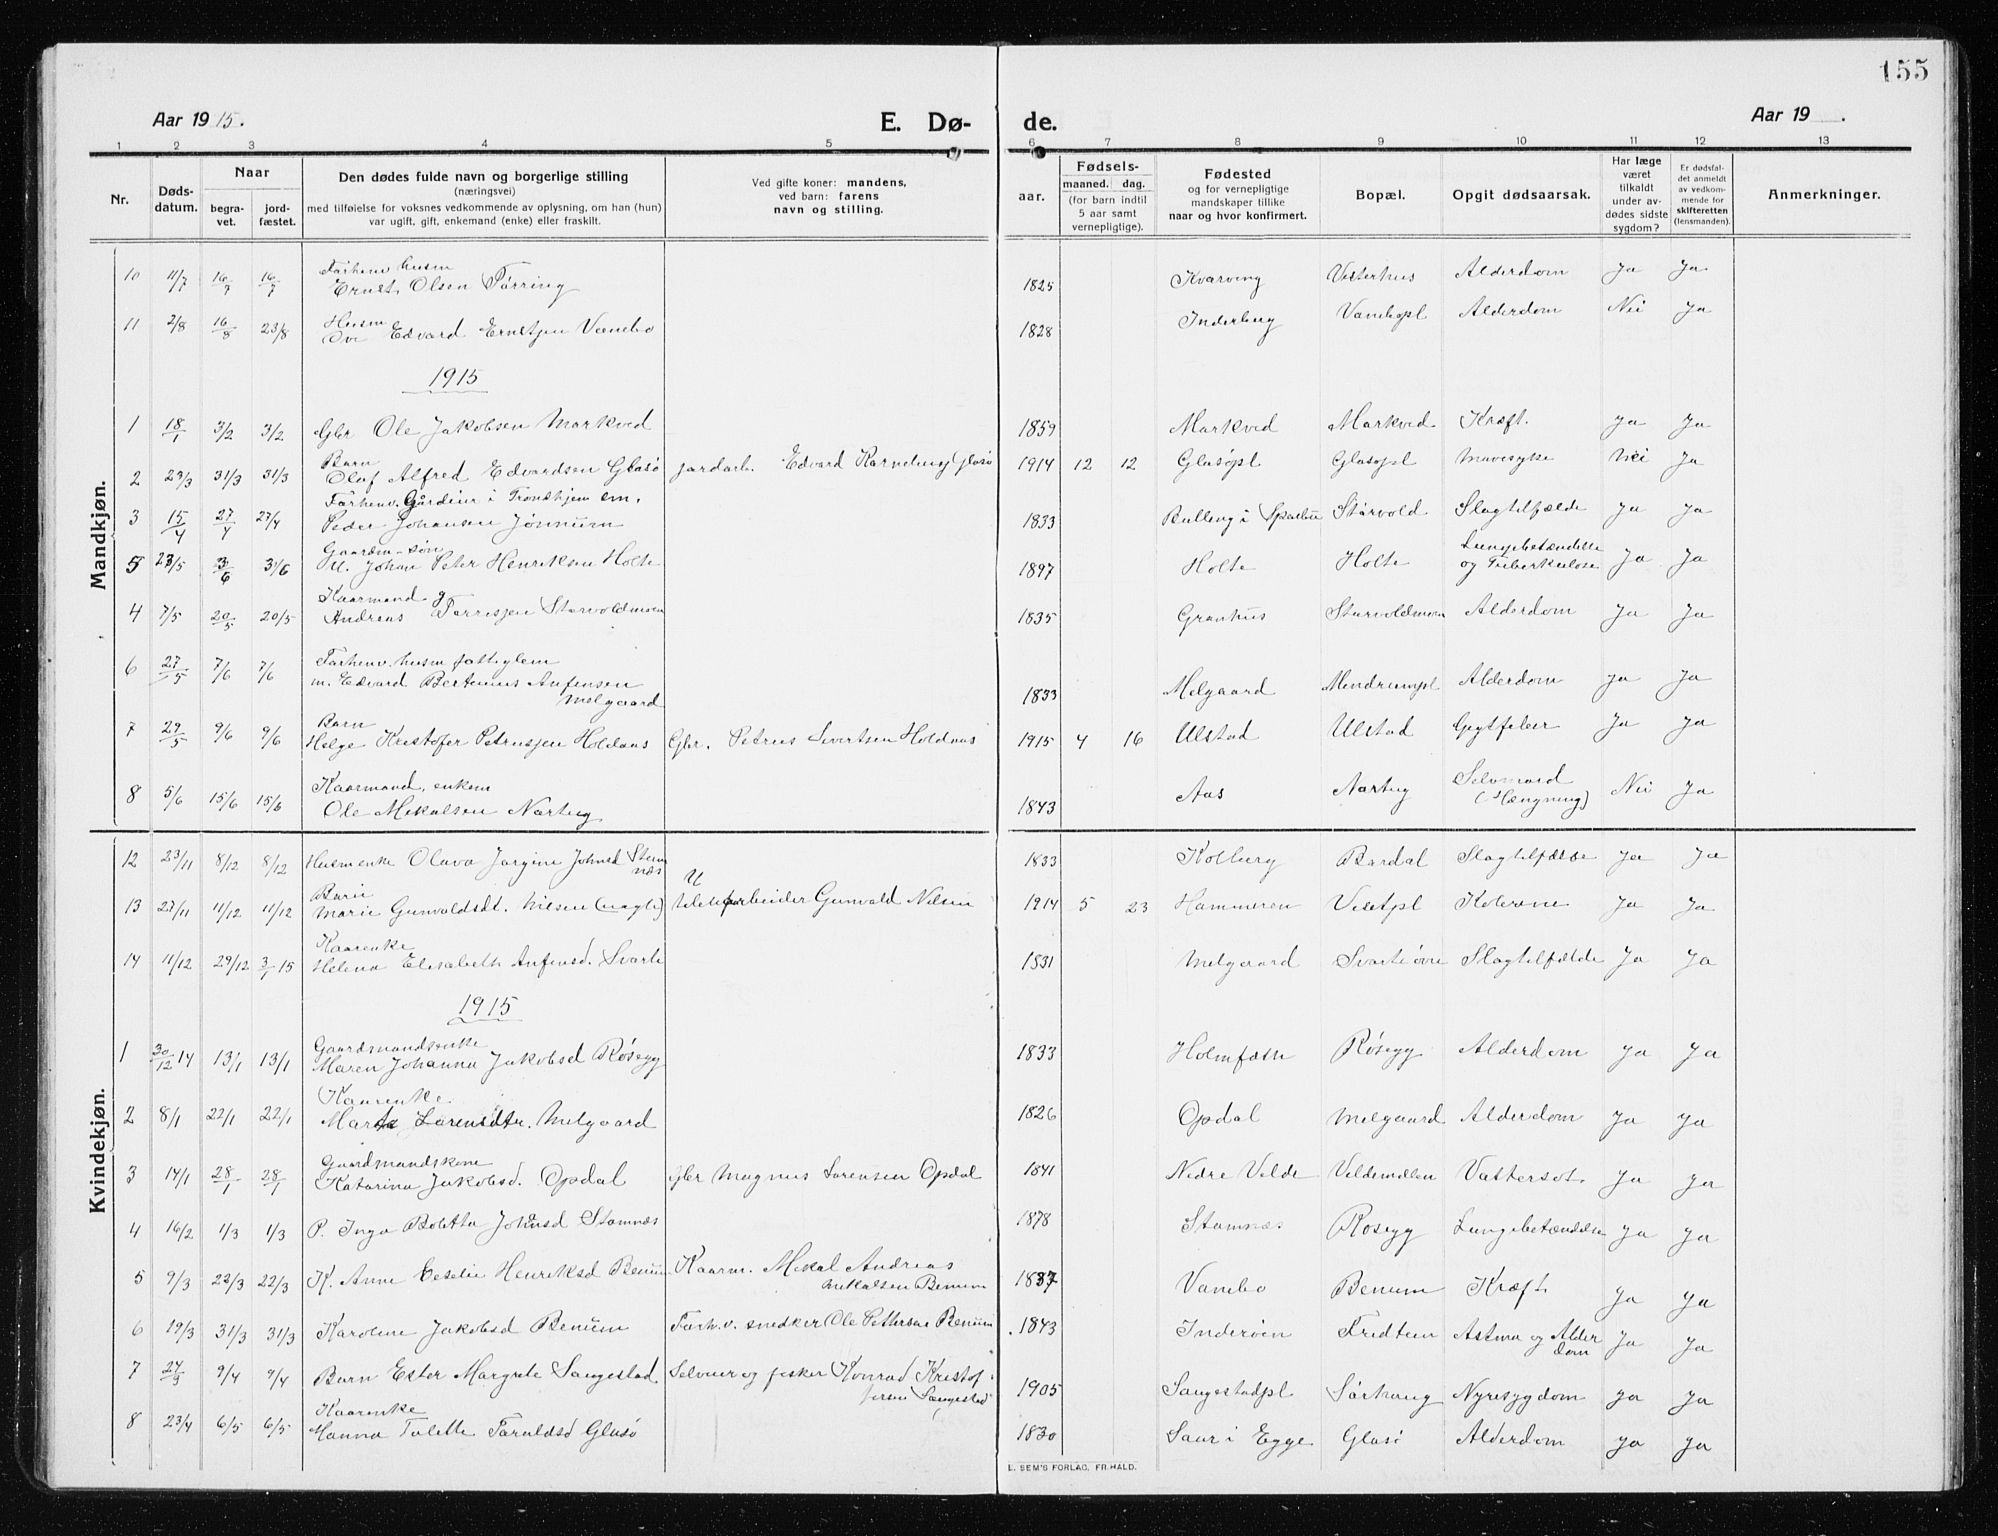 155
Aar 1915. E. Dø- de. Aar 19 .
1 2 3 4 5 6 7 8 9 10 11 12 13
Nr. Døds-datum. Naar begra-vet. jord-fæstet. Den dødes fulde navn og borgerlige stilling (næringsvei) med tilføielse for voksnes vedkommende av oplysning, om han (hun) var ugift, gift, enkemand (enke) eller fraskilt. Ved gifte koner: mandens, ved barn: farens navn og stilling. aar. Fødsels- maaned. dag. (for barn indtil 5 aar samt vernepligtige). Fødested og for vernepligtige mandskaper tillike naar og hvor konfirmert. Bopæl. Opgit dødsaarsak. Har læge været tilkaldt under av-dødes sidste sygdom? Er dødsfal-det anmeldt av vedkom-mende for skifteretten (lensmanden). Anmerkninger.
Mandkjøn.
10 11/7 16/7 16/7 Forhenv husm Ernst Olsen Tørring 1825 Kvarving Vesterhus Alderdom Ja Ja
11 2/8 16/8 23/8 Husm Ove Edvard Ernstsen Vanebo 1828 Inderberg Alderdom Nei Ja
1915
1 18/1 3/2 3/2 Gbr Ole Jakobsen Markved 1859 Markved Markved Kræft. Ja Ja
2 23/3 31/3 31/3 Barn Olaf Alfred Edvardsen Glasø jordarb. Edvard Glasø 1914 12 12 Glasøpl Glasøpl Mavesyke Nei Ja
3 15/4 27/4 27/4 Forhenv. Gårdeier i Trondhjem em. Peder Johansen Jønnum 1833 i Sparbu Stårvold Slagtilfælde Ja Ja
5 23/5 3/6 3/6 Gaardm-søn U. Johan Peter Henriksen Holte 1897 Holte Holte Lungebetændelse og Tuberkulose Ja Ja
4 7/5 20/5 20/5 Kaarmand g Andreas Torresen Starvoldmoen 1835 Granhus Starvoldmoen Alderdom Ja Ja
6 27/5 7/6 7/6 Forhenv. husm fattiglem m. Edvard Bertinus Anfinsen Melgaard 1833 Melgaard Alderdom Ja Ja
7 29/5 9/6 9/6 Barn Helge Kristofer Petrusen Holdaas Gbr. Petrus Sivertsen Holdaas 1915 4 16 Ulstad Ulstad Ja Ja
8 5/6 15/6 15/6 Kaarmand, enkem Ole Mikalsen Norberg 1843 Aas Selvmord (Hængning) Nei Ja
Kvindekjøn.
12 23/11 8/12 8/12 Husmenke Olava Jørgine Johnsd Stamnæs 1833 Kolberg Bardal Slagtilfælde Ja Ja
13 27/11 11/12 11/12 Barn Marie Gunvaldsdt. Nilsen (uægte) U Gunvald Nilsen 1914 5 23 Hammeren Kolerine Ja Ja
14 11/12 29/12 3/1 15 Kaarenke Helena Elisabeth Anfinsd. Svarte 1831 Melgaard Svarte øvre Slagtilfælde Ja Ja
1915
1 30/12 14 13/1 13/1 Gaardmandsenke Maren Johanna Jakobsd Røsegg 1833 Røsegg Alderdom Ja Ja
2 8/1 22/1 22/1 Kaarenke. Marta Lorensdtr. Melgaard 1826 Opdal Melgaard Alderdom Ja Ja
3 14/1 28/1 28/1 Gaardmandskone Katarina Jakobsd. Opdal Gbr Magnus Lorensen Opdal 1841 Nedre Velde Veldemelen Vattersot. Ja Ja
4 16/2 1/3 1/3 P. Inga Boletta Johansd Stamnæs 1878 Stamnæs Røsegg Lungebetændelse Ja Ja
5 9/3 22/3 22/3 K. Anne Eeselie Henriksd Benum Kaarm. Mikal Andreas Mikalsen Benum 1837 Vanebo Benum Kræft Ja Ja
6 19/3 31/3 31/3 Karoline Jakobsd Benum Forh.v. snedker Ole Pettersen Benum 1843 Inderøen Fredtein Astma og Alderdom Ja Ja
7 24/3 9/4 9/4 Barn Ester Margrete Langestad Selveier og fisker Konrad Kristofersen Langestad 1905 Langestadpl Sørhaug Nyresygdom Ja Ja
8 23/4 6/5 6/5 Kaarenke Hanna Tolette Toraldsd Glasø 1830 Saur i Egge Glasø Alderdom Ja Ja
L. SEM'S FORLAG, FR.HALD.